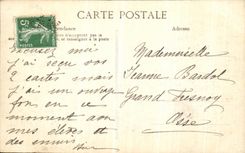 CARTE POSTALE
Correspondance
Adresse
5
Excusez moi
j'ai reçu vos
2 cartes mais
j'ai un ouvrage
fou en ce
moment avec
mes élèves et
des ennuis
Mademoiselle
Jeanne Bardol
Grand Fresnoy
Oise